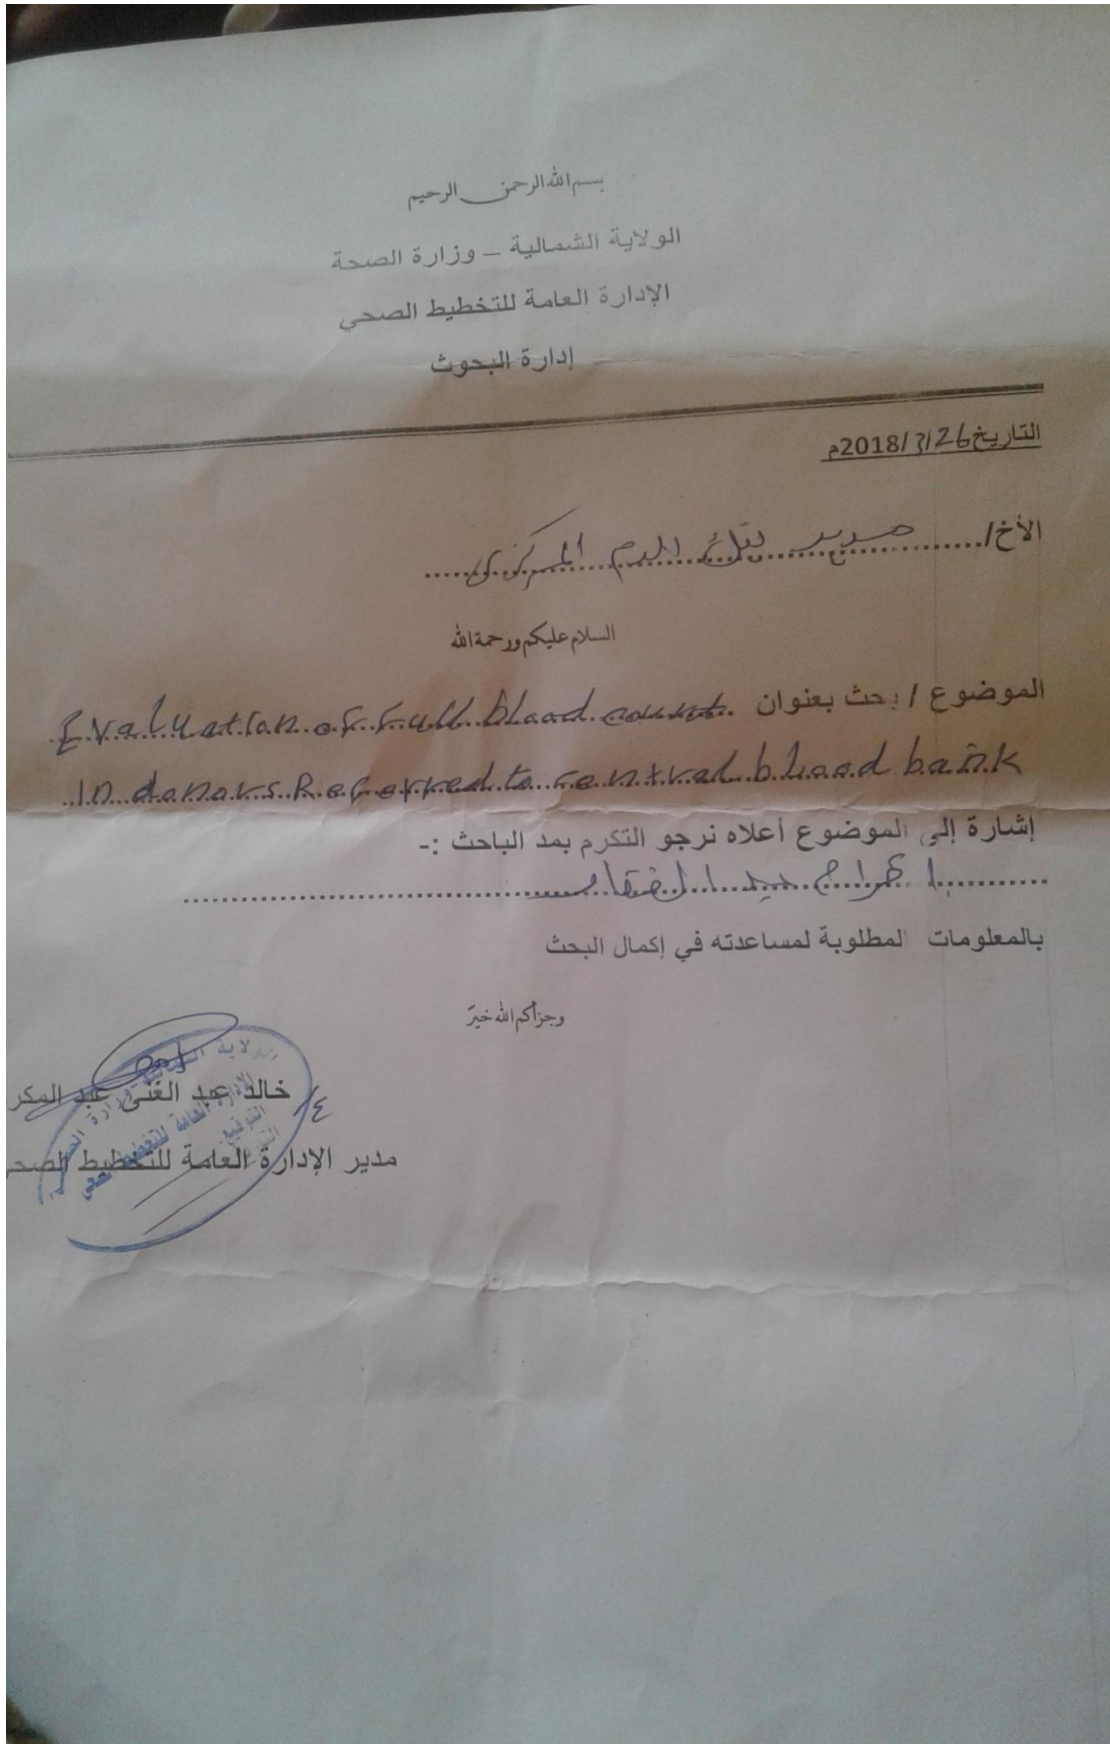 بسم الله الرحمن الرحيم
الولاية الشمالية – وزارة الصحة
الإدارة العامة للتخطيط الصحي
إدارة البحوث
التاريخ 26/3/2018م
الأخ/ مدير بنك الدم المركزى
السلام عليكم ورحمة الله
الموضوع / بحث بعنوان Evaluation of full blood count
In donors Referred to central blood bank
إشارة إلي الموضوع أعلاه نرجو التكرم بمد الباحث :-
بالمعلومات المطلوبة لمساعدته في إكمال البحث
وجزاكم الله خير
خالد عبد الغنى عبد المكر
مدير الإدارة العامة للتخطيط الصحي